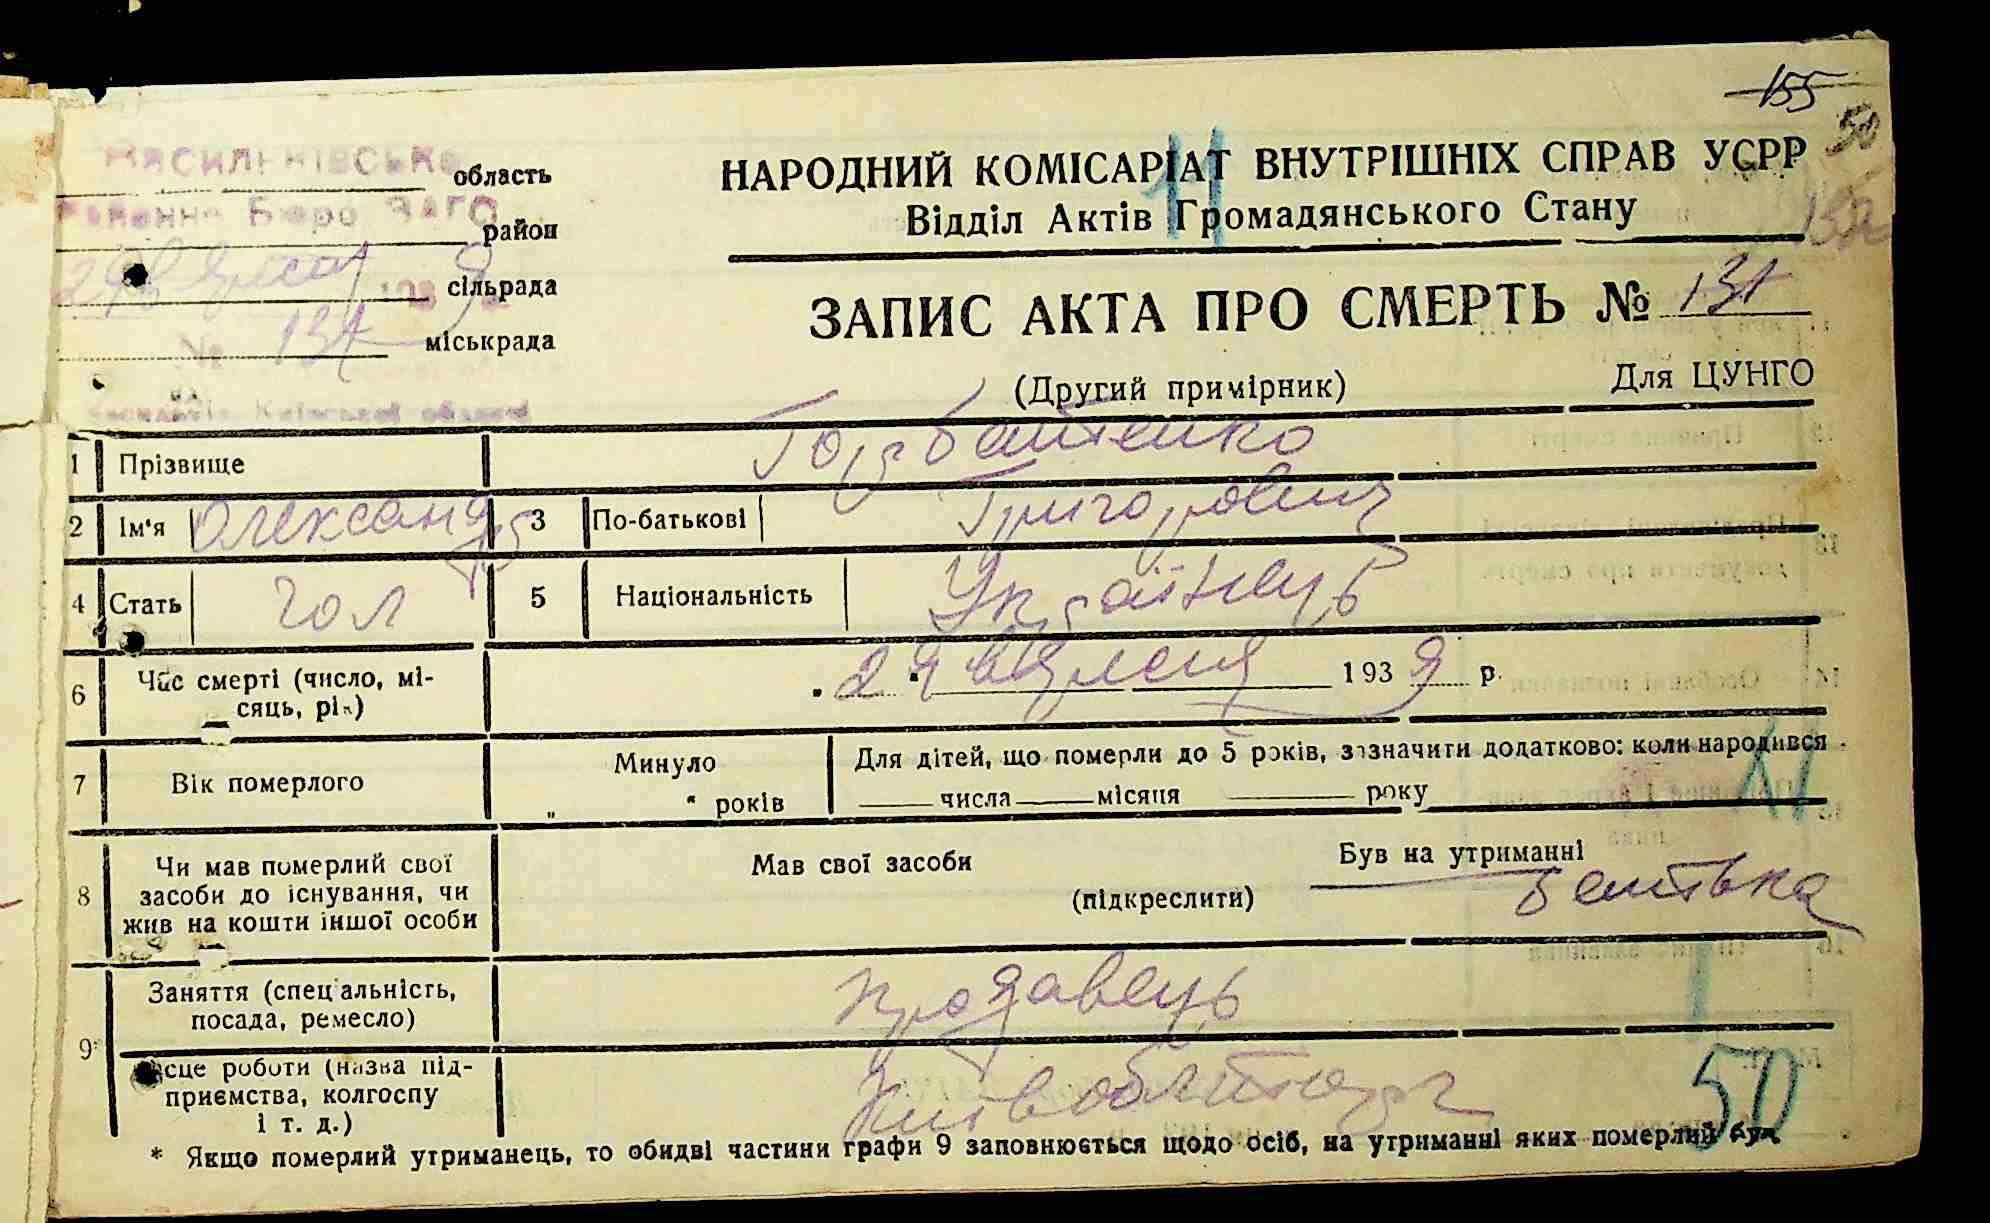 155
50
Васильківське область
Районне Бюро ЗАГС район
29 вересня 1939 сільрада
№ 131 міськрада
Київської області
НАРОДНИЙ КОМІСАРІАТ ВНУТРІШНІХ СПРАВ УСРР
Відділ Актів Громадянського Стану
11
ЗАПИС АКТА ПРО СМЕРТЬ № 131
(Другий примірник) Для ЦУНГО
1 Прізвище
2 Ім'я Олександр 3 По-батькові Григорович
4 Стать Чол 5 Національність Українець
6 Час смерті (число, мі-
сяць, рік) 1939 р.
7 Вік померлого Минуло
„ " років
Для дітей, що померли до 5 років, зазначити додатково: коли народився
числа місяця року
8 Чи мав померлий свої
засоби до існування, чи
жив на кошти іншої особи
Мав свої засоби Був на утриманні
(підкреслити) батька
9* Заняття (спеціальність,
посада, ремесло) продавець
Місце роботи (назва під-
приємства, колгоспу
і т. д.) Київоблторг
50
* Якщо померлий утриманець, то обидві частини графи 9 заповнюється щодо осіб, на утриманні яких померлий був